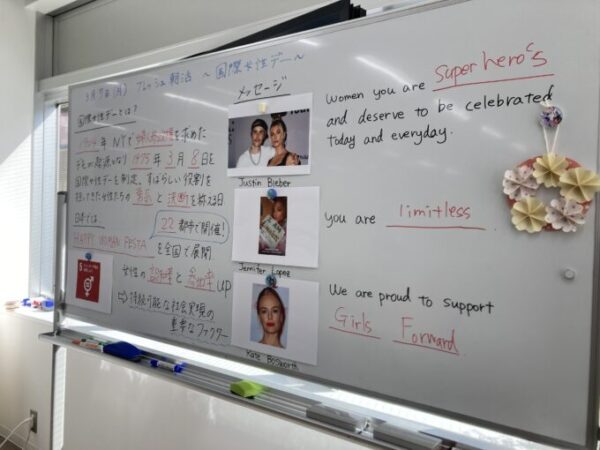 3月7日(月) フレッシュ朝活 ~国際女性デー~
国際女性デーとは?
1904年 NYで婦人参政権を求めた
デモが起源となり 1975年 3月 8日を
国際女性デーを制定。すばらしい役割を
担ってきた女性たちの勇気と決断を称える日
日本では
22都市で開催!
HAPPY WOMAN FESTA
を全国で展開
女性の認知率と参加率UP
⇨持続可能な社会実現の
重要なファクター
5
メッセージ
Justin Bieber
Jennifer Lopne
Kate Bosworth
Women you are superhero's
and deserve to be celebrated
today and everyday.
you are limitless
We are proud to support
Girls Forward